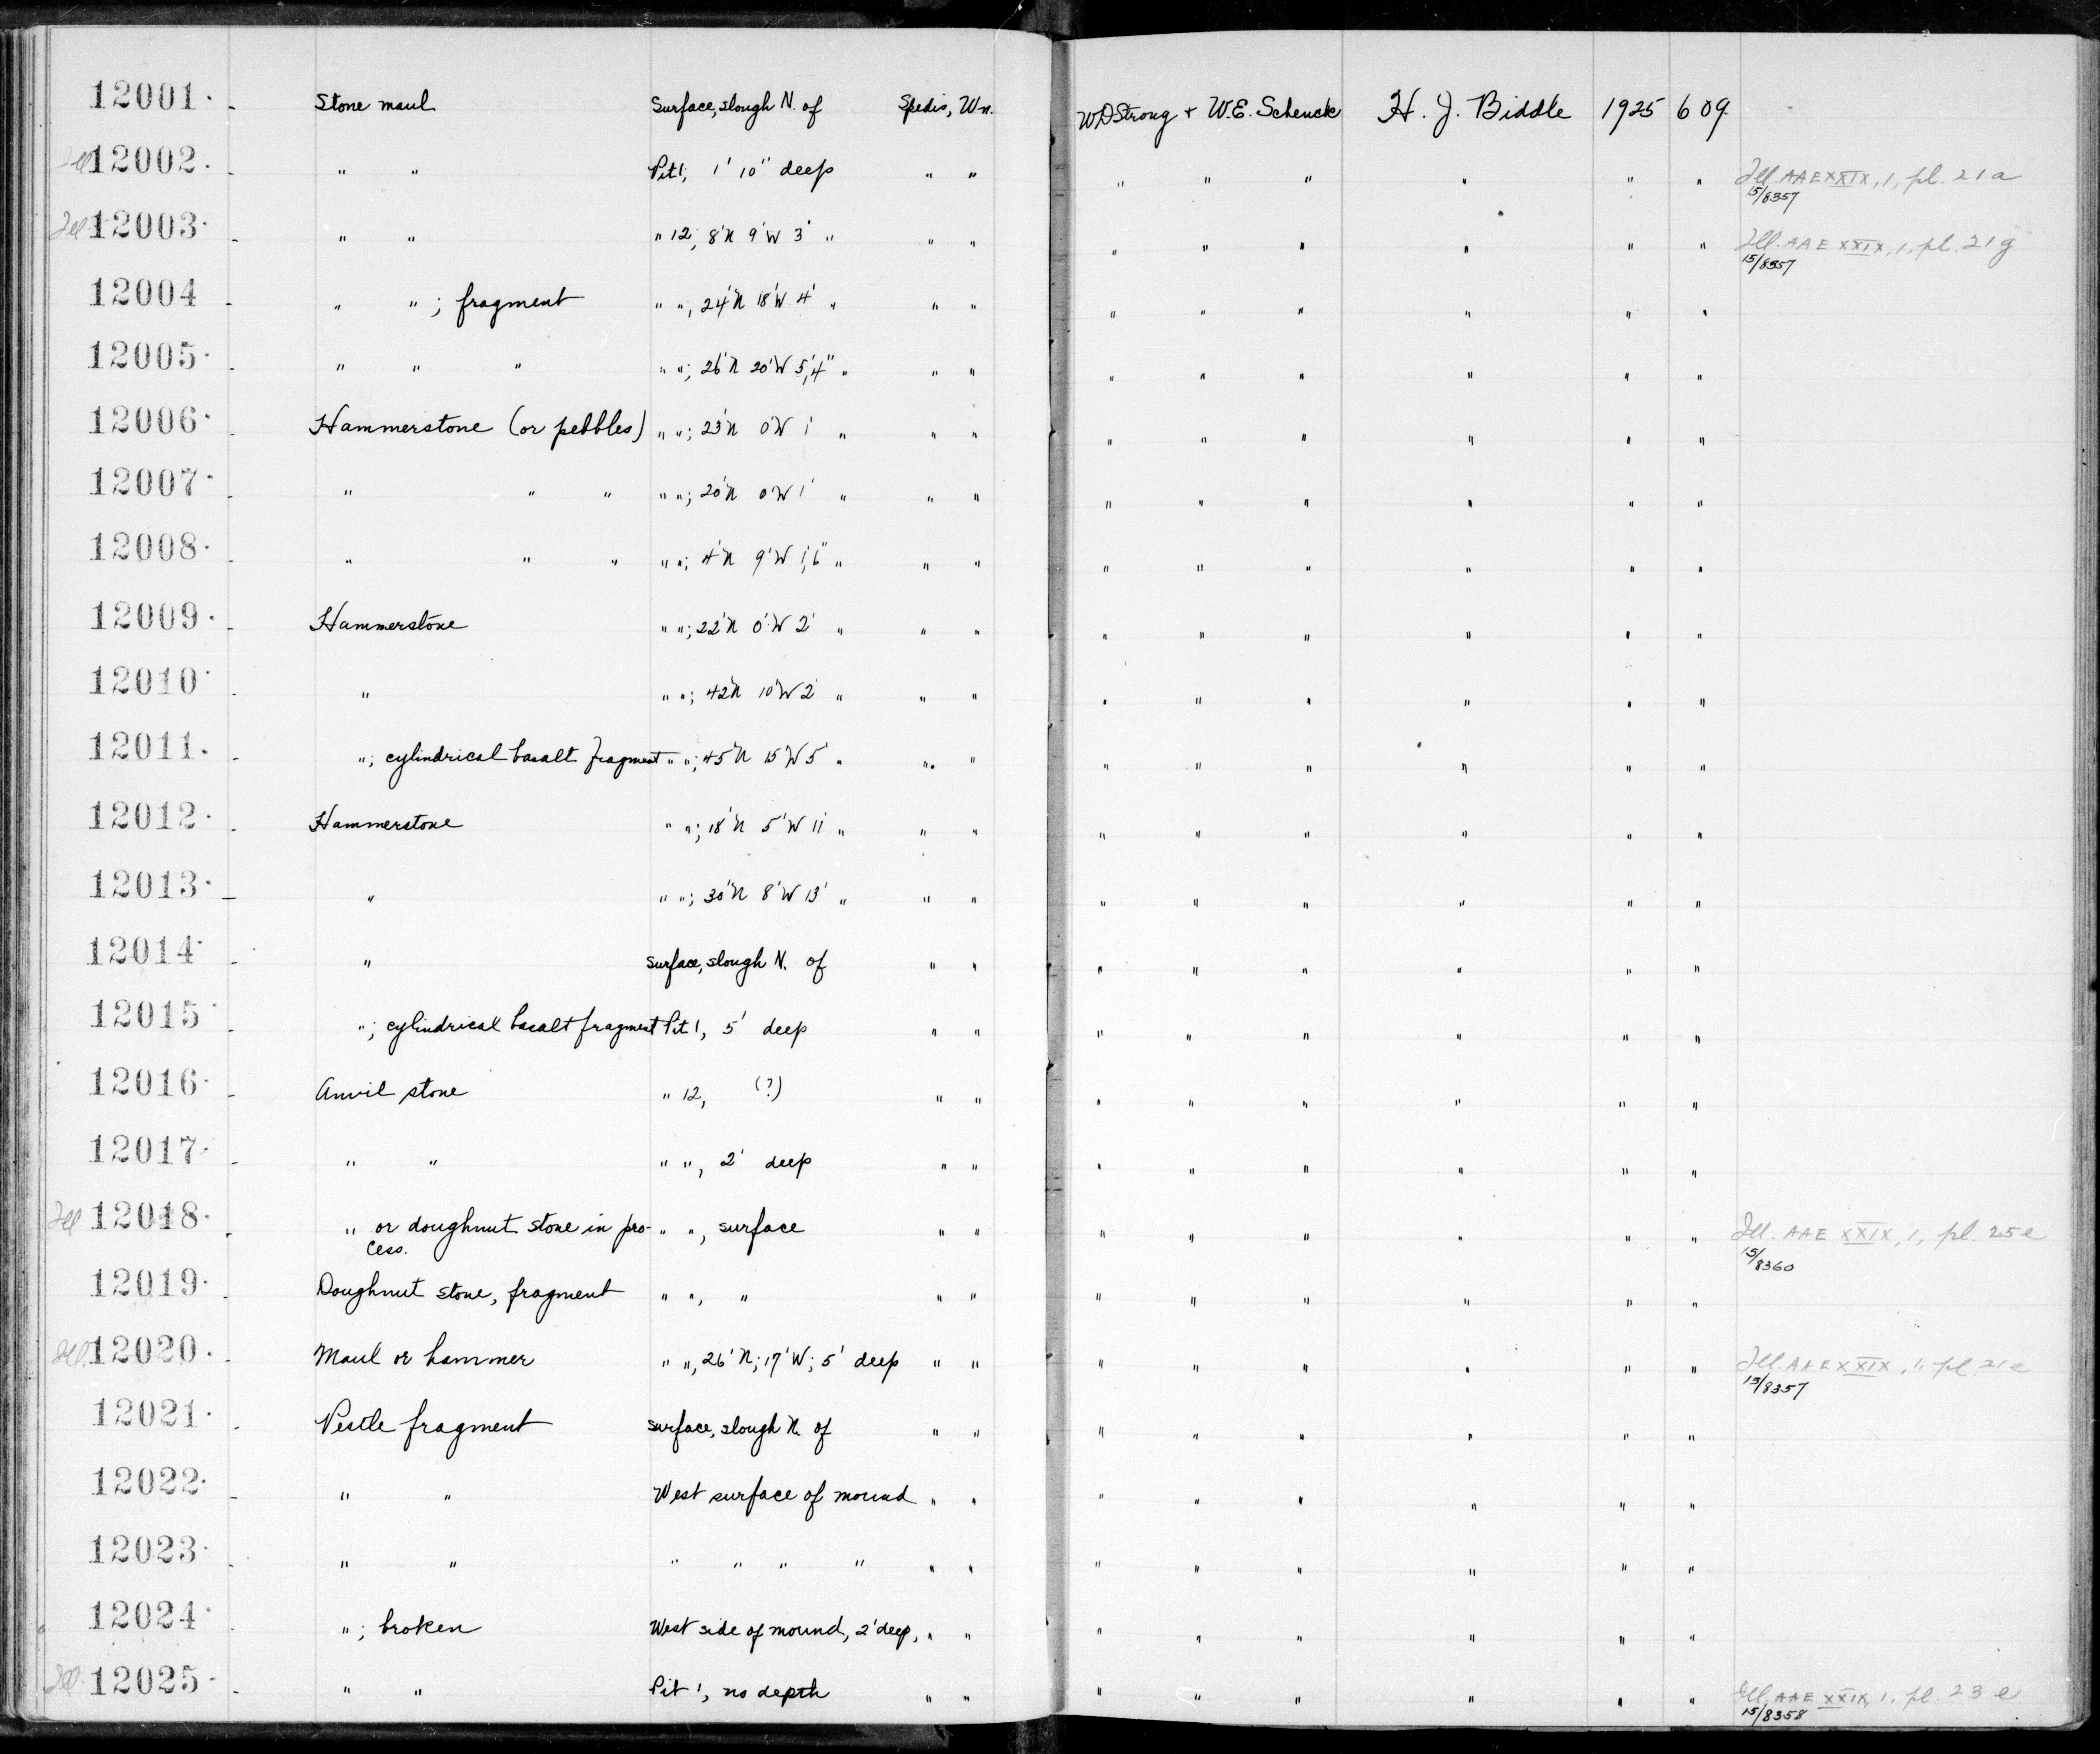 12001. Stone maul Surface, slough N. of Spedis, Wn. W.D Strong + W.E. Schenck H. J. Biddle 1925 609
Ill 12002. " " Pit 1; 1' 10" deep " " " " " " " " Ill. AAE XXIX, 1, pl. 21a
15/8357
Ill 12003. " " " 12; 8'N 9'W 3' " " " " " " " " " Ill. AAE XXIX, 1, pl. 21g
15/8357
12004 " " ; fragment " "; 24'N 18'W 4' " " " " " " " " "
12005. " " " " "; 26'N 20'W 5',4" " " " " " " " " "
12006. Hammerstone (or pebbles) " "; 23'N 0'W 1' " " " " " " " " "
12007. " " " " "; 20'N 0'W 1' " " " " " " " " "
12008. " " " " "; 4'N 9'W 1',6" " " " " " " " " "
12009. Hammerstone " "; 22'N 0'W 2' " " " " " " " " "
12010. " " "; 42'N 10'W 2' " " " " " " " " "
12011. "; cylindrical basalt fragment " "; 45'N 15'W 5' " " " " " " " " "
12012. Hammerstone " "; 18'N 5'W 11' " " " " " " " " "
12013. " " "; 30'N 8'W 13' " " " " " " " " "
12014. " surface, slough N. of " " " " " " " "
12015. "; cylindrical basalt fragment Pit 1, 5' deep " " " " " " " "
12016. Anvil stone " 12, (?) " " " " " " " "
12017. " " " ", 2' deep " " " " " " " "
Ill 12018. " or doughnut stone in pro- " ", surface " " " " " " " " Ill. AAE XXIX, 1, pl. 25e
cess. 15/8360
12019. Doughnut stone, fragment " ", " " " " " " " " "
Ill. 12020. Maul or hammer " ", 26' N; 17' W; 5' deep " " " " " " " " Ill. AAE XXIX, 1, pl. 21e
15/8357
12021. Pestle fragment surface, slough N. of " " " " " " " "
12022. " " West surface of mound " " " " " " " "
12023. " " " " " " " " " " " " " "
12024. "; broken West side of mound, 2' deep, " " " " " " " "
Ill. 12025. " " Pit 1, no depth " " " " " " " " Ill. AAE XXIX, 1, pl. 23 e
15/8358